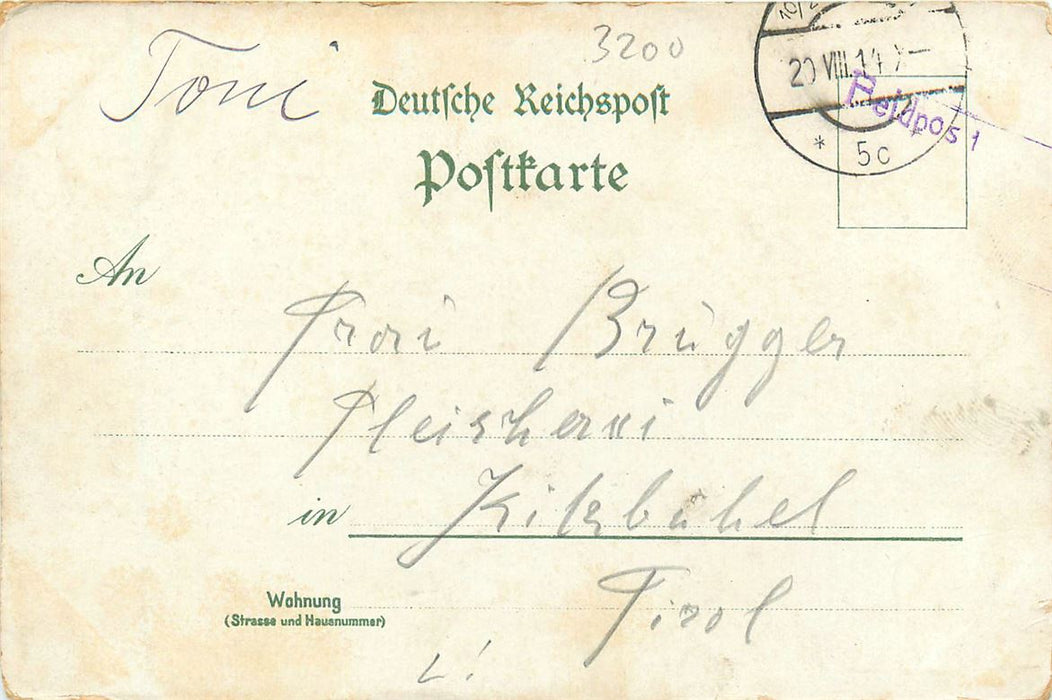 Toni
3200
Deutsche Reichspost
Postkarte
20 VIII.14
Feldpost
* 5c
An
Frau Brugger
Fleischerei
in Kitzbuhel
Wohnung
(Strasse und Hausnummer)
Tirol